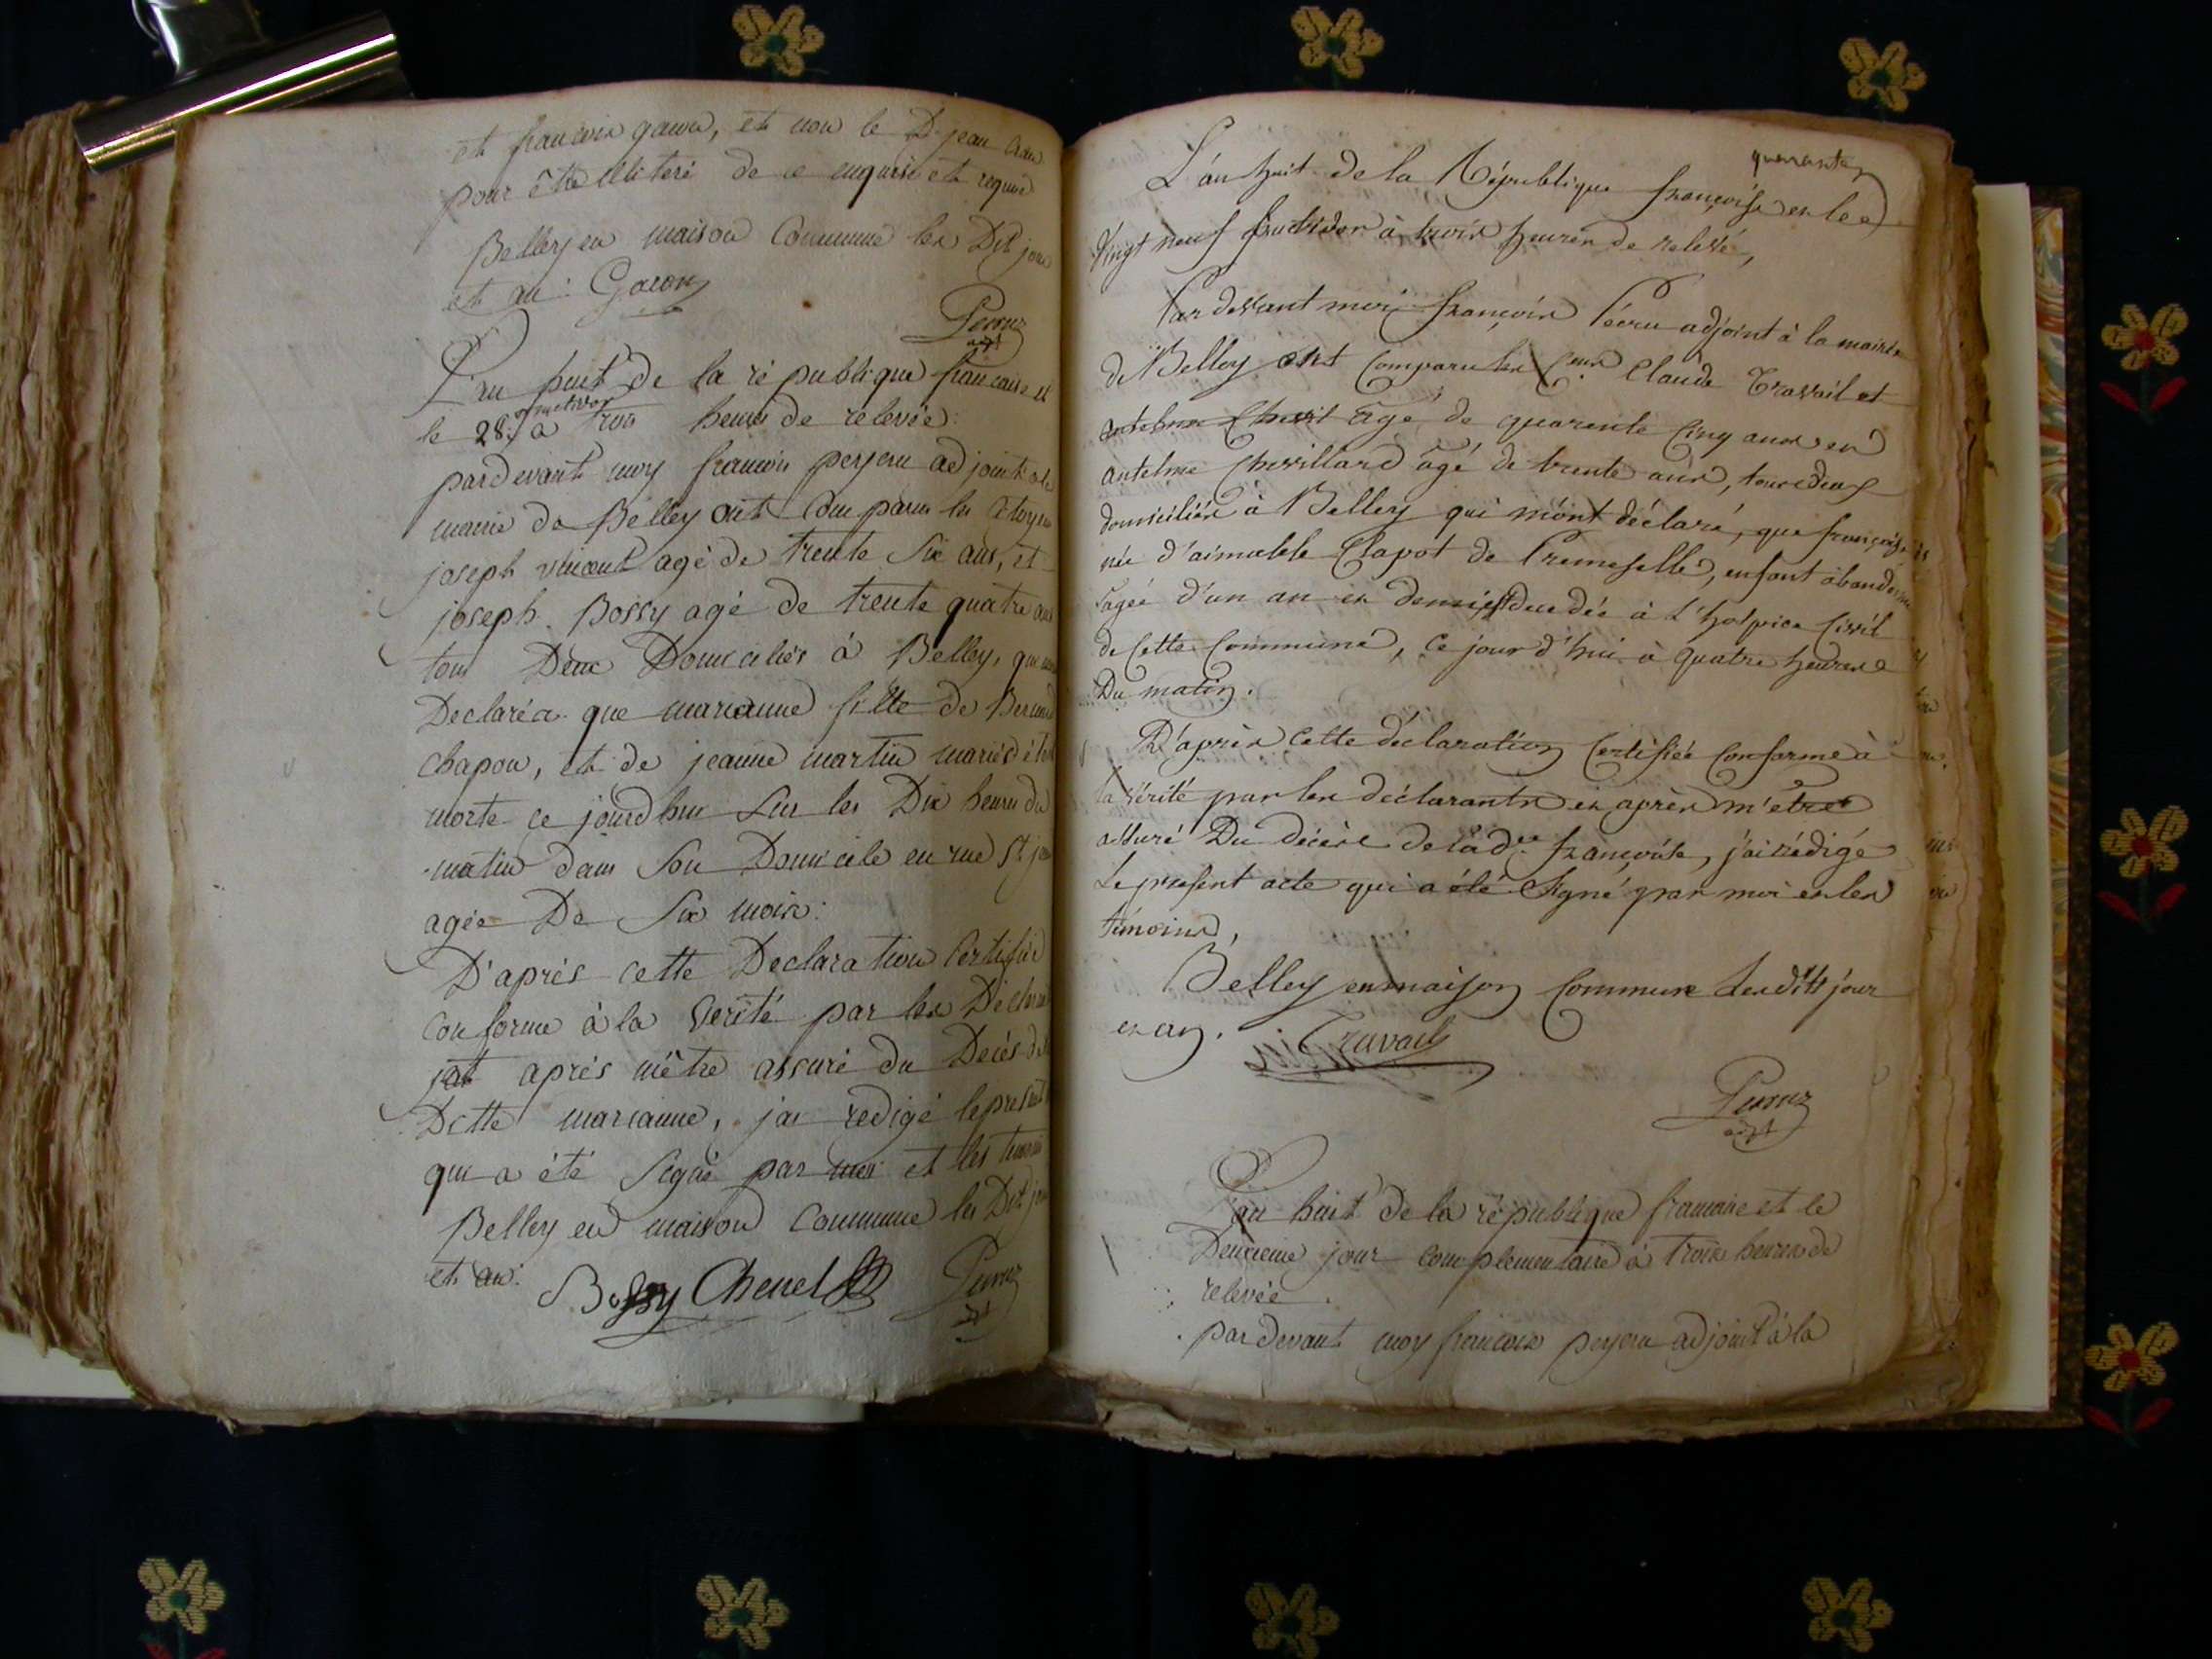 et francois gacon, et non le D. jean
pour être illiteré de ce enquis et requis
Belley en maison Commune les Dit jour
et an. Gacon
adjt
L'an huit de la république francaise et
le 28. fructidor à trois heures de relevée.
pardevant moy francois peyeru adjoint à la
mairie de Belley ont Comparus les Citoyens
joseph vincent agé de trente Six ans, et
joseph. Bossy agé de trente quatre ans
tous Deux Domiciliés à Belley, qui
Declaréa que marianne fille de Bernard
Chapou, et de jeanne martin mariés
morte ce jourdhui Sur les Dix heures du
matin dans Son Domicile en rue St. jean
agée De Six mois:
D'aprés cette Declaration Certifiée
Conforme à la verité par les Déclarants
jai aprés m'être assuré du Decés de
Ditte marianne, jai redigé le present
qui a été Signé par moi et les temoins
Belley en maison Commune les Dit jour
et an. Bossy Chenel
adjt
quarante
L'an huit de la République françoise et le
Vingt neuf fructidor à trois heures de relevé,
Par devant moi françois adjoint à la mairie
de Belley ont Comparu les Cens Claude Travail et
antelme agé de quarente Cinq ans et
antelme Chevillard âgé de trente ans, tous deux
domiciliés à Belley qui m'ont déclaré, que françoise
née d'aimable Clapot de Premeselle, enfant abandonné
agée d'un an et demi, est decedée à l'hospice Civil
de Cette Commune, ce jourd'hui à quatre heures
Du matin.
D'après cette déclaration Certifiée Conforme à
la vérité par les déclarants et après m'être
assuré Du décès de la de. françoise, j'ai rédigé
Le present acte qui a été Signé par moi et les
témoins,
Belley en maison Commune Lesdits jour
et an. Travail
adjt
L'an huit de la république francaise et le
Deuxieme jour complementaire à trois heures de
relevée.
par devant moy francois peyeru adjoint à la